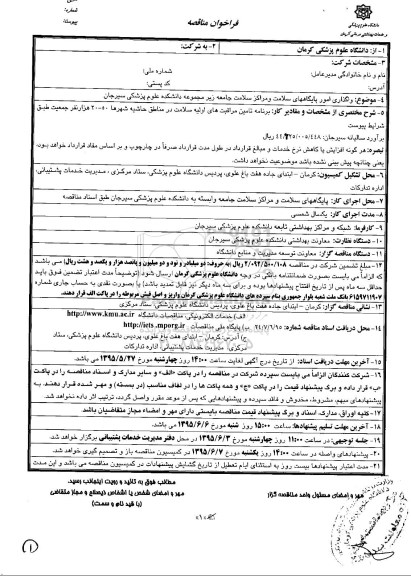 فراخوان مناقصه
شماره:
تاریخ:
پیوست:
۱- از: دانشگاه علوم پزشکی کرمان
۲- به شرکت:
۳- مشخصات شرکت:
نام و نام خانوادگی مدیرعامل:
شماره ملی:
آدرس:
کد پستی:
۴- موضوع: واگذاری امور پایگاههای سلامت ومراکز سلامت جامعه زیر مجموعه دانشکده علوم پزشکی سیرجان
۵- شرح مختصری از مشخصات و مقادیر کار: برنامه تامین مراقبت های اولیه سلامت در مناطق حاشیه شهرها ۵۰-۲۰ هزارنفر جمعیت طبق
شرایط پیوست
برآورد سالیانه سیرجان:
تبصره: هر گونه افزایش یا کاهش نرخ خدمات و مبالغ قرارداد در طول مدت قرارداد صرفاً در چارچوب و بر اساس مفاد قرارداد خواهد بود،
یعنی چنانچه پیش بینی نشده باشد موضوعیت نخواهد داشت.
۶- محل تشکیل کمیسیون: کرمان – ابتدای جاده هفت باغ علوی، پردیس دانشگاه علوم پزشکی، ستاد مرکزی، مدیریت خدمات پشتیبانی،
اداره تدارکات
۷- محل اجرای کار: پایگاههای سلامت و مراکز سلامت جامعه وابسته به دانشکده علوم پزشکی سیرجان طبق اسناد مناقصه
۸- مدت اجرای کار: یکسال شمسی
۹- کارفرما: شبکه و مراکز بهداشتی تابعه دانشکده علوم پزشکی سیرجان
۱۰- دستگاه نظارت: معاونت بهداشتی دانشکده علوم پزشکی سیرجان
۱۱- دستگاه مناقصه گزار: معاونت توسعه مدیریت و منابع دانشگاه
۱۲- مبلغ تضمین شرکت در مناقصه ۲/۰۹۲/۵۰۰/۱۰۸ ریال به حروف: دو میلیارد و نود و دو میلیون و پانصد هزار و یکصد و هشت ریال) می باشد
۱۳- نشانی مناقصه گزار: کرمان – ابتدای جاده هفت باغ علوی، پردیس دانشگاه علوم پزشکی، ستاد مرکزی
۱۴- محل دریافت اسناد مناقصه
الف) خدمات الکترونیکی، مناقصات دانشگاه http://www.kmu.ac.ir
ب) پایگاه ملی مناقصات http://iets.mporg.ir
ج) آدرس: کرمان – ابتدای هفت باغ علوی، پردیس دانشگاه علوم پزشکی، ستاد
مرکزی، مدیریت خدمات پشتیبانی، اداره تدارکات
۱۵- آخرین مهلت دریافت اسناد: از تاریخ درج آگهی لغایت ساعت ۱۴:۰۰ چهارشنبه مورخ ۱۳۹۵/۵/۲۷ می باشد.
۱۶- شرکت کنندگان الزاماً می بایست سپرده شرکت در مناقصه را در پاکت «الف» و سایر مدارک و اسناد مناقصه را در پاکت
«ب» قرار داده و برگ پیشنهاد قیمت را در پاکت «ج» و همه پاکت ها را در لفاف مناسب (در بسته) و مهر شده قرار دهند. به
پیشنهادهای مبهم، مشروط، مخدوش و فاقد سپرده و پیشنهادهایی که پس از موعد مقرر واصل گردد، ترتیب اثر داده نخواهد شد.
۱۷- کلیه اوراق، مدارک، اسناد و برگ پیشنهاد قیمت مناقصه بایستی دارای مهر و امضاء مجاز متقاضیان باشد.
۱۸- آخرین مهلت تسلیم پیشنهادها: ساعت ۱۵:۰۰ روز شنبه مورخ ۱۳۹۵/۶/۶ می باشد.
۱۹- جلسه توجیهی: در ساعت ۱۱:۰۰ روز چهارشنبه مورخ ۱۳۹۵/۶/۳ در محل دفتر مدیریت خدمات پشتیبانی برگزار خواهد شد.
۲۰- پیشنهادهای واصله در ساعت ۱۴:۰۰ روز یکشنبه مورخ ۱۳۹۵/۶/۷ در کمیسیون مناقصه باز و تصمیم گیری خواهد شد.
۲۱- مدت اعتبار پیشنهادها بیست روز به استثنای ایام تعطیل از تاریخ گشایش پیشنهادات در کمیسیون مناقصه می باشد و این مدت
مهر و امضای مسئول واحد مناقصه گزار
مطالب فوق به تائید و رویت اینجانب رسید.
مهر و امضای شخص یا اشخاص ذیصلاح و مجاز متقاضی
(با قید نام و سمت)